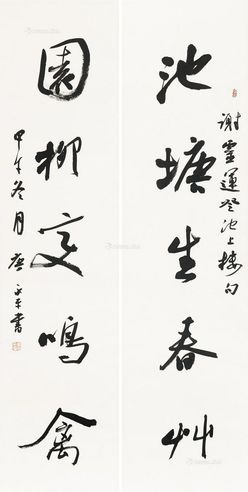 池塘生春艸
謝靈運登池上樓句
園柳变鳴禽
甲午冬月唐永平書